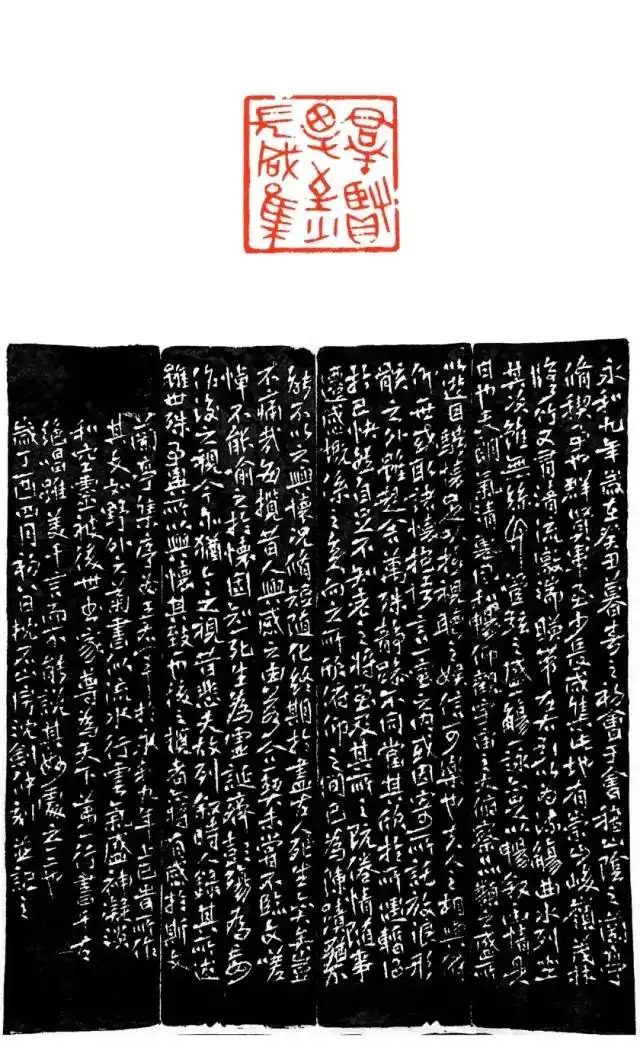 羣賢
畢至少
長咸集
永和九年歲在癸丑暮春之初會于會稽山陰之蘭亭
脩稧事也群賢畢至少長咸集此地有崇山峻嶺茂林
脩竹又有清流激湍暎帶左右引以為流觴曲水列坐
其次雖無絲竹管弦之盛一觴一詠亦足以暢敘幽情是
日也天朗氣清惠風和暢仰觀宇宙之大俯察品類之盛所
以遊目騁懷足以極視聽之娛信可樂也夫人之相與俯
仰一世或取諸懷抱悟言一室之內或因寄所託放浪形
骸之外雖趣舍萬殊靜躁不同當其欣於所遇暫得
於己快然自足不知老之將至及其所之既倦情隨事
遷感慨係之矣向之所欣俯仰之間已為陳跡猶不
能不以之興懷況脩短隨化終期於盡古人云死生亦大矣豈
不痛哉每攬昔人興感之由若合一契未嘗不臨文嗟
悼不能喻之於懷固知一死生為虛誕齊彭殤為妄
作後之視今亦猶今之視昔悲夫故列敘時人錄其所述
雖世殊事異所以興懷其致一也後之攬者亦將有感於斯文
蘭亭集序為王羲之於永和九年上巳日所作
其文書似流水行雲氣盛神凝
和空靈被後世書家尊為天下第一行書千古
絕唱雖美千言而不能說其妙處之一也
歲丁巳四月初八日沈劍刻並記之